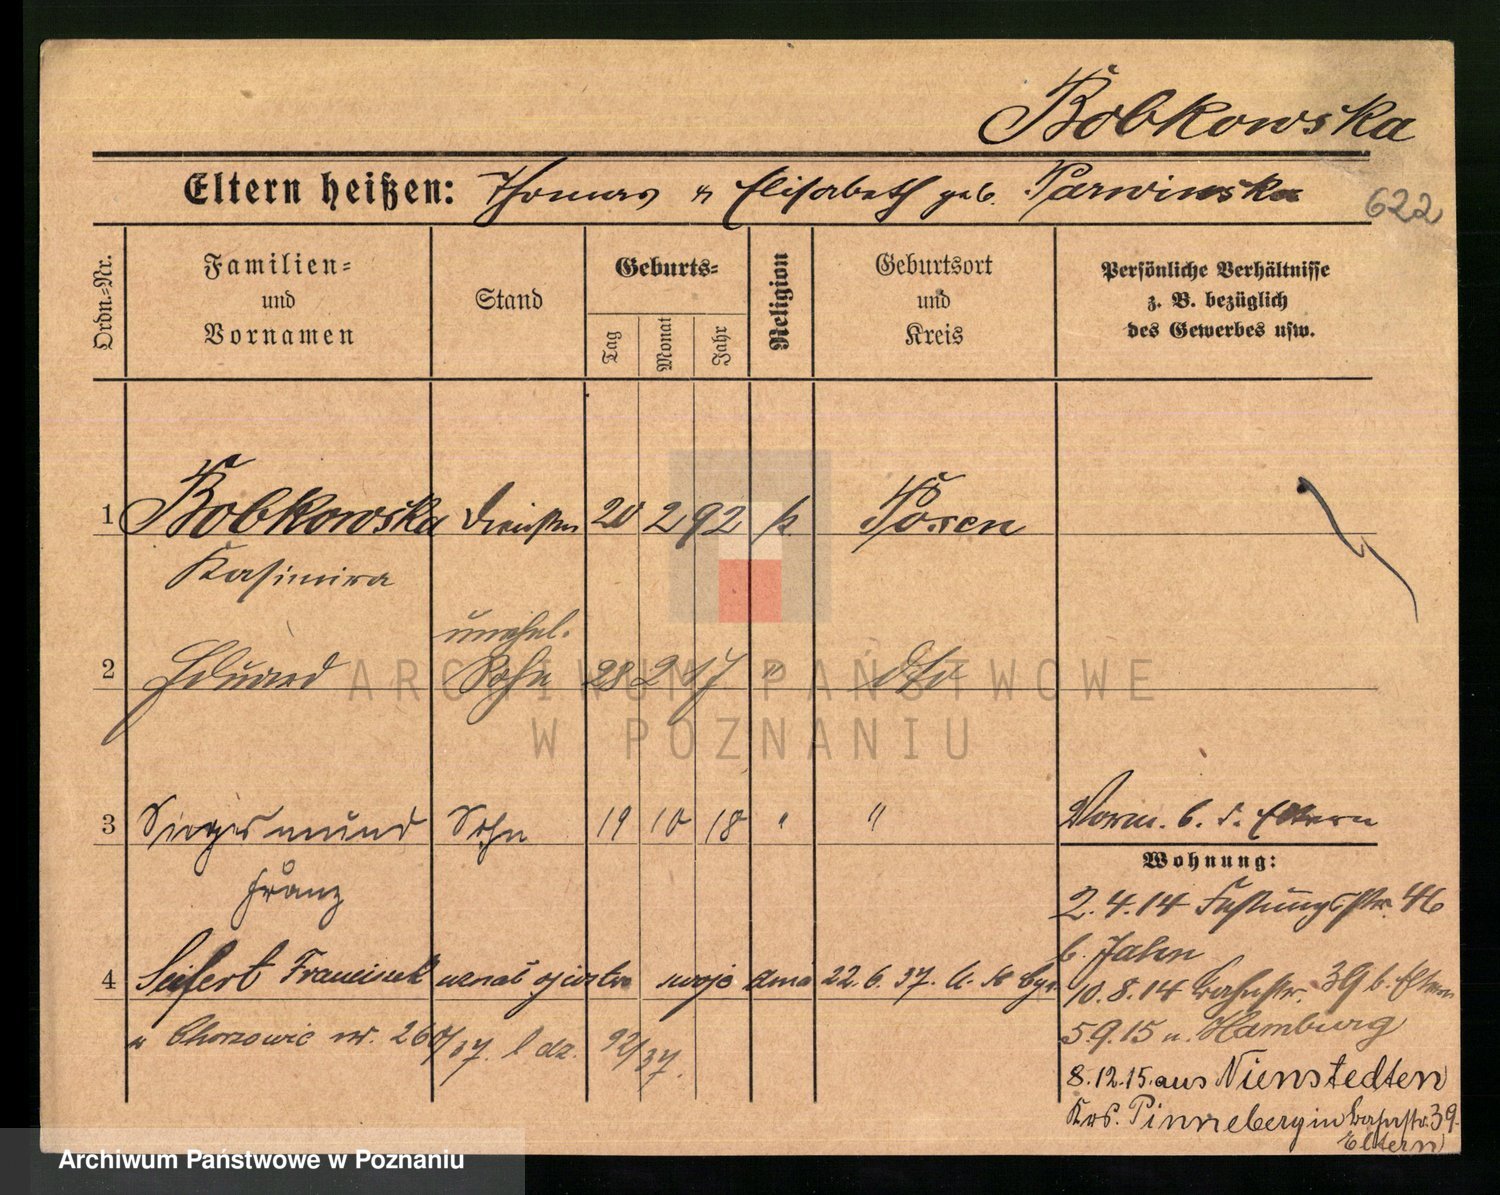 Bobkowska
Eltern heißen: Thomas u Elisabeth geb. Parwinska
622
Ordn.-Nr.
Familien- und Vornamen
Stand
Geburts-
Tag
Monat
Jahr
Religion
Geburtsort und Kreis
Persönliche Verhältnisse
z. B. bezüglich
des Gewerbes usw.
1 Bobkowska 20 2 92 k. Posen
Kasimira
unehel.
2 Eduard Sohn 28 2 17 " dto
3 Siegesmund Sohn 19 10 18 " " Vorm. b. d. Eltern
Franz
Wohnung:
2.4.14 Festungsstr. 46
b. Jahn
4 Seifert Franciszek uznał ojcostwo swoje dnia 22.6.37. U. S. Cyw.
10.8.14 39 b. Eltern
w Chorzowie nr. 260/37. l dz. 92/37.
5.9.15 n. Hamburg
8.12.15. aus Nienstedten
Krs. Pinneberg in 39.
Eltern
ARCHIWUM PAŃSTWOWE
W POZNANIU
Archiwum Państwowe w Poznaniu